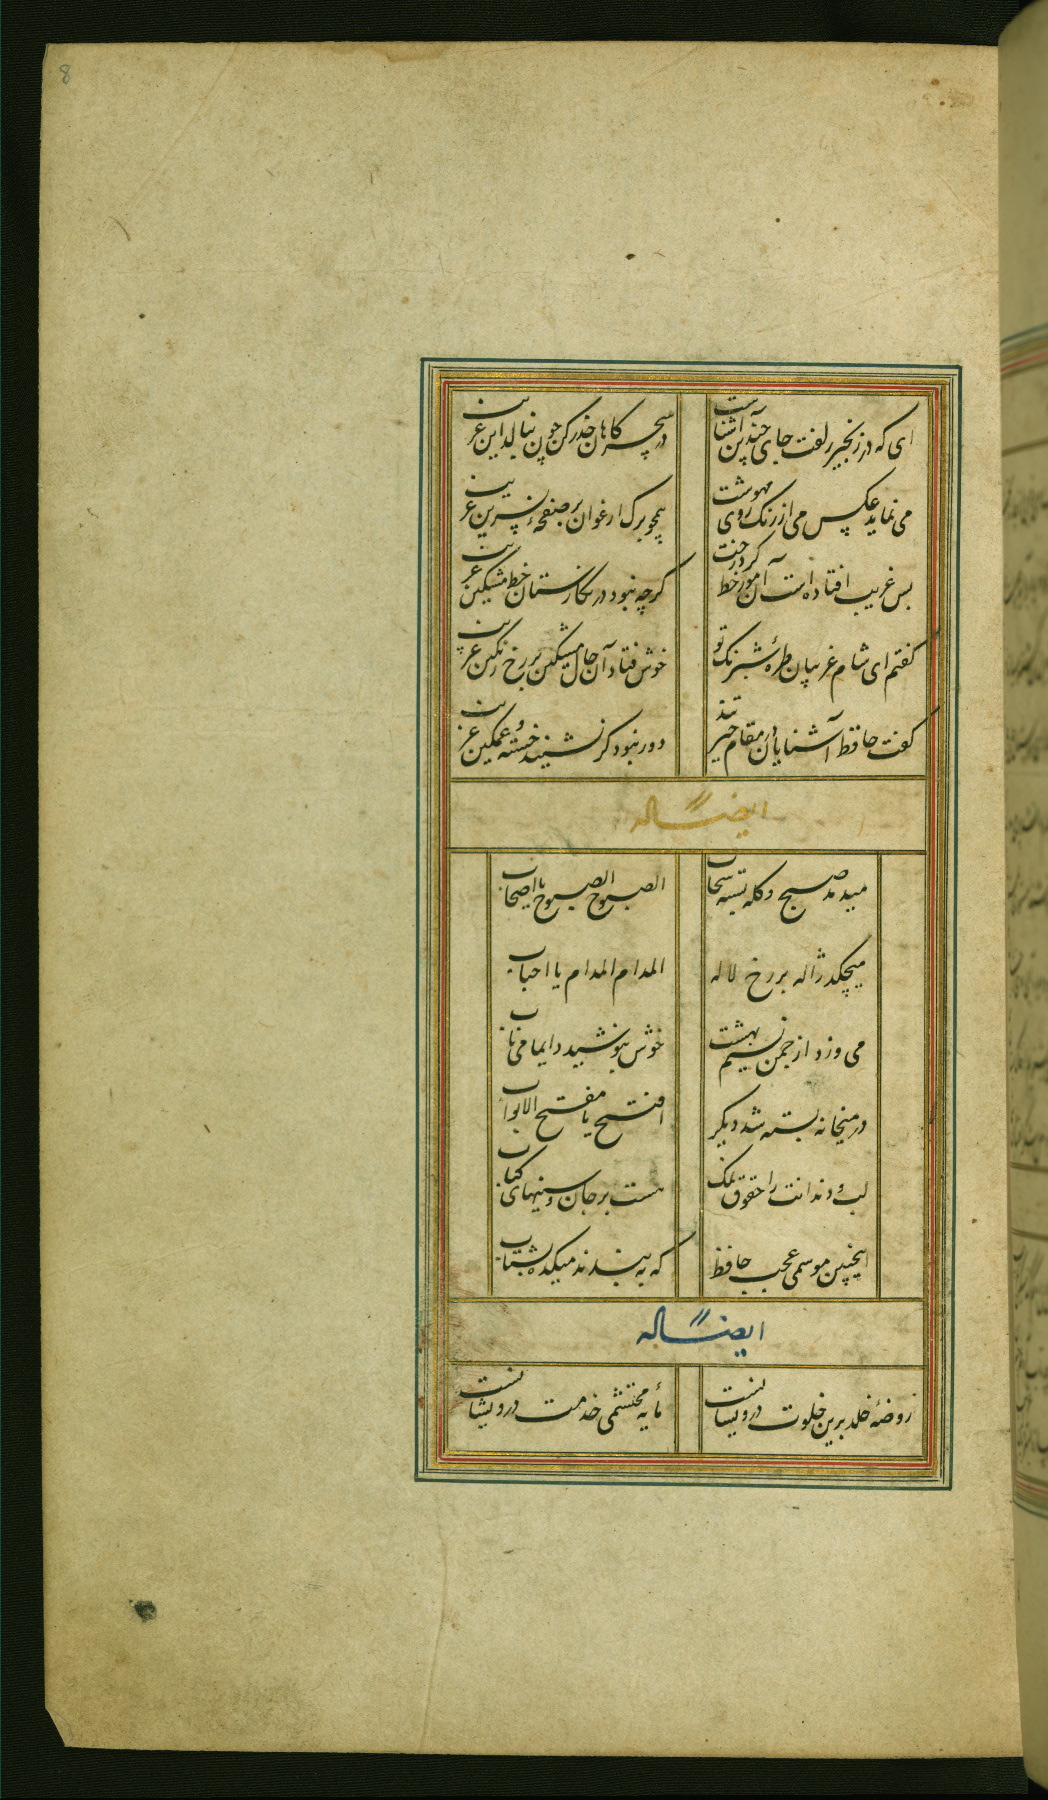 8
ای که در زنجیر زلفت جای چندین آشناست
در سحرگاهان حذر کن چون بنالد این غریب
می نماید عکس می از رنک روی مهوشت
همچو برک ارغوان بر صفحهٔ نسرین غریب
بس غریب افتاده است آن مور خط کرد رخت
کرچه نبود در نکارستان خط مشکین غریب
کفتم ای شام غریبان طرهٔ شبرنک تو
خوش فتاد آن خال مشکین بر رخ رنکین غریب
کفت حافظ آشنایان در مقام حیرتند
دور نبود کر نشیند خسته و غمکین غریب
ایضاً له
میدمد صبح و کله بسته سحاب
الصبوح الصبوح یا اصحاب
میچکد ژاله بر رخ لاله
المدام المدام یا احباب
می وزد از چمن نسیم بهشت
خوش بنوشید دایما می ناب
در میخانه بسته شد دیکر
افتتح یا مفتح الابواب
لب و دندانت را حقوق نمک
هست بر جان و سینهای کباب
اینچنین موسمی عجب حافظ
که به بندند میکده بشتاب
ایضاً له
روضهٔ خلد برین خلوت درویشانست
مایهٔ محتشمی خدمت درویشانست